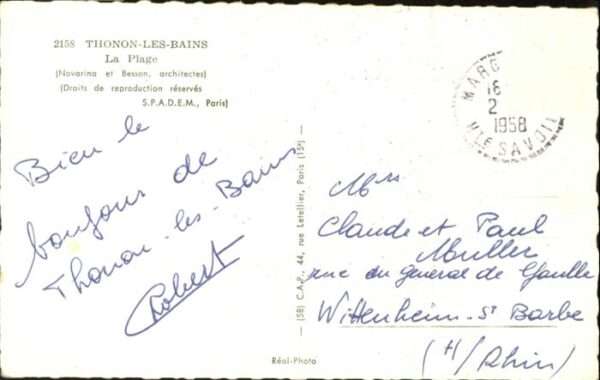 2158 THONON-LES-BAINS
La Plage
(Novarina et Besson, architectes)
(Droits de reproduction réservés
S.P.A.D.E.M., Paris)
MARG
16
2
1958
HTE SAVOIE
Bien le
bonjour de
Thonon-les-Bains
Robert
(58) C.A.P., 44, rue Letellier, Paris (15e)
Mrs
Claude et Paul
Muller
rue du general de Gaulle
Wittenheim-St Barbe
(H/Rhin)
Réal-Photo